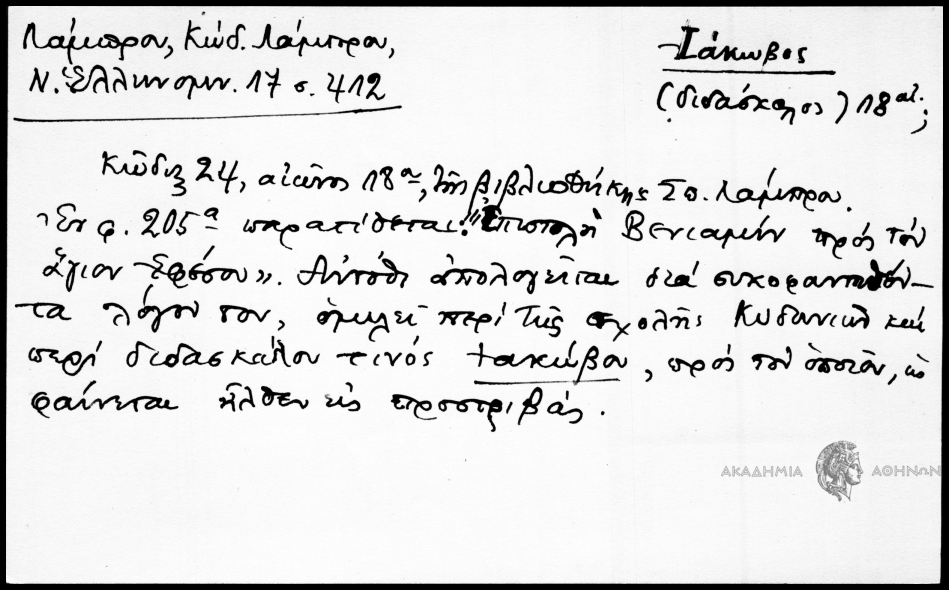 Λάμπρου, Κώδ. Λάμπρου,
Ν. Ἑλληνομν. 17 σ. 412
Ἰάκωβος
(διδάσκαλος) 18 αἰ.;
Κώδιξ 24, αἰῶνος 18ου, τῆς βιβλιοθήκης Σπ. Λάμπρου.
Ἐν φ. 205α παρατίθεται: "Ἐπιστολή Βενιαμίν πρός τόν
ἅγιον Ἐφέσου». Αὐτόθι ἀπολογεῖται διά συκοφαντηθέν-
τα λόγον του, ὁμιλεῖ περί τῆς σχολῆς Κυδωνιῶν καί
περί διδασκάλου τινός Ἰακώβου, πρός τόν ὁποῖον, ὡς
φαίνεται ἦλθεν εἰς προστριβάς.
ΑΚΑΔΗΜΙΑ ΑΘΗΝΩΝ